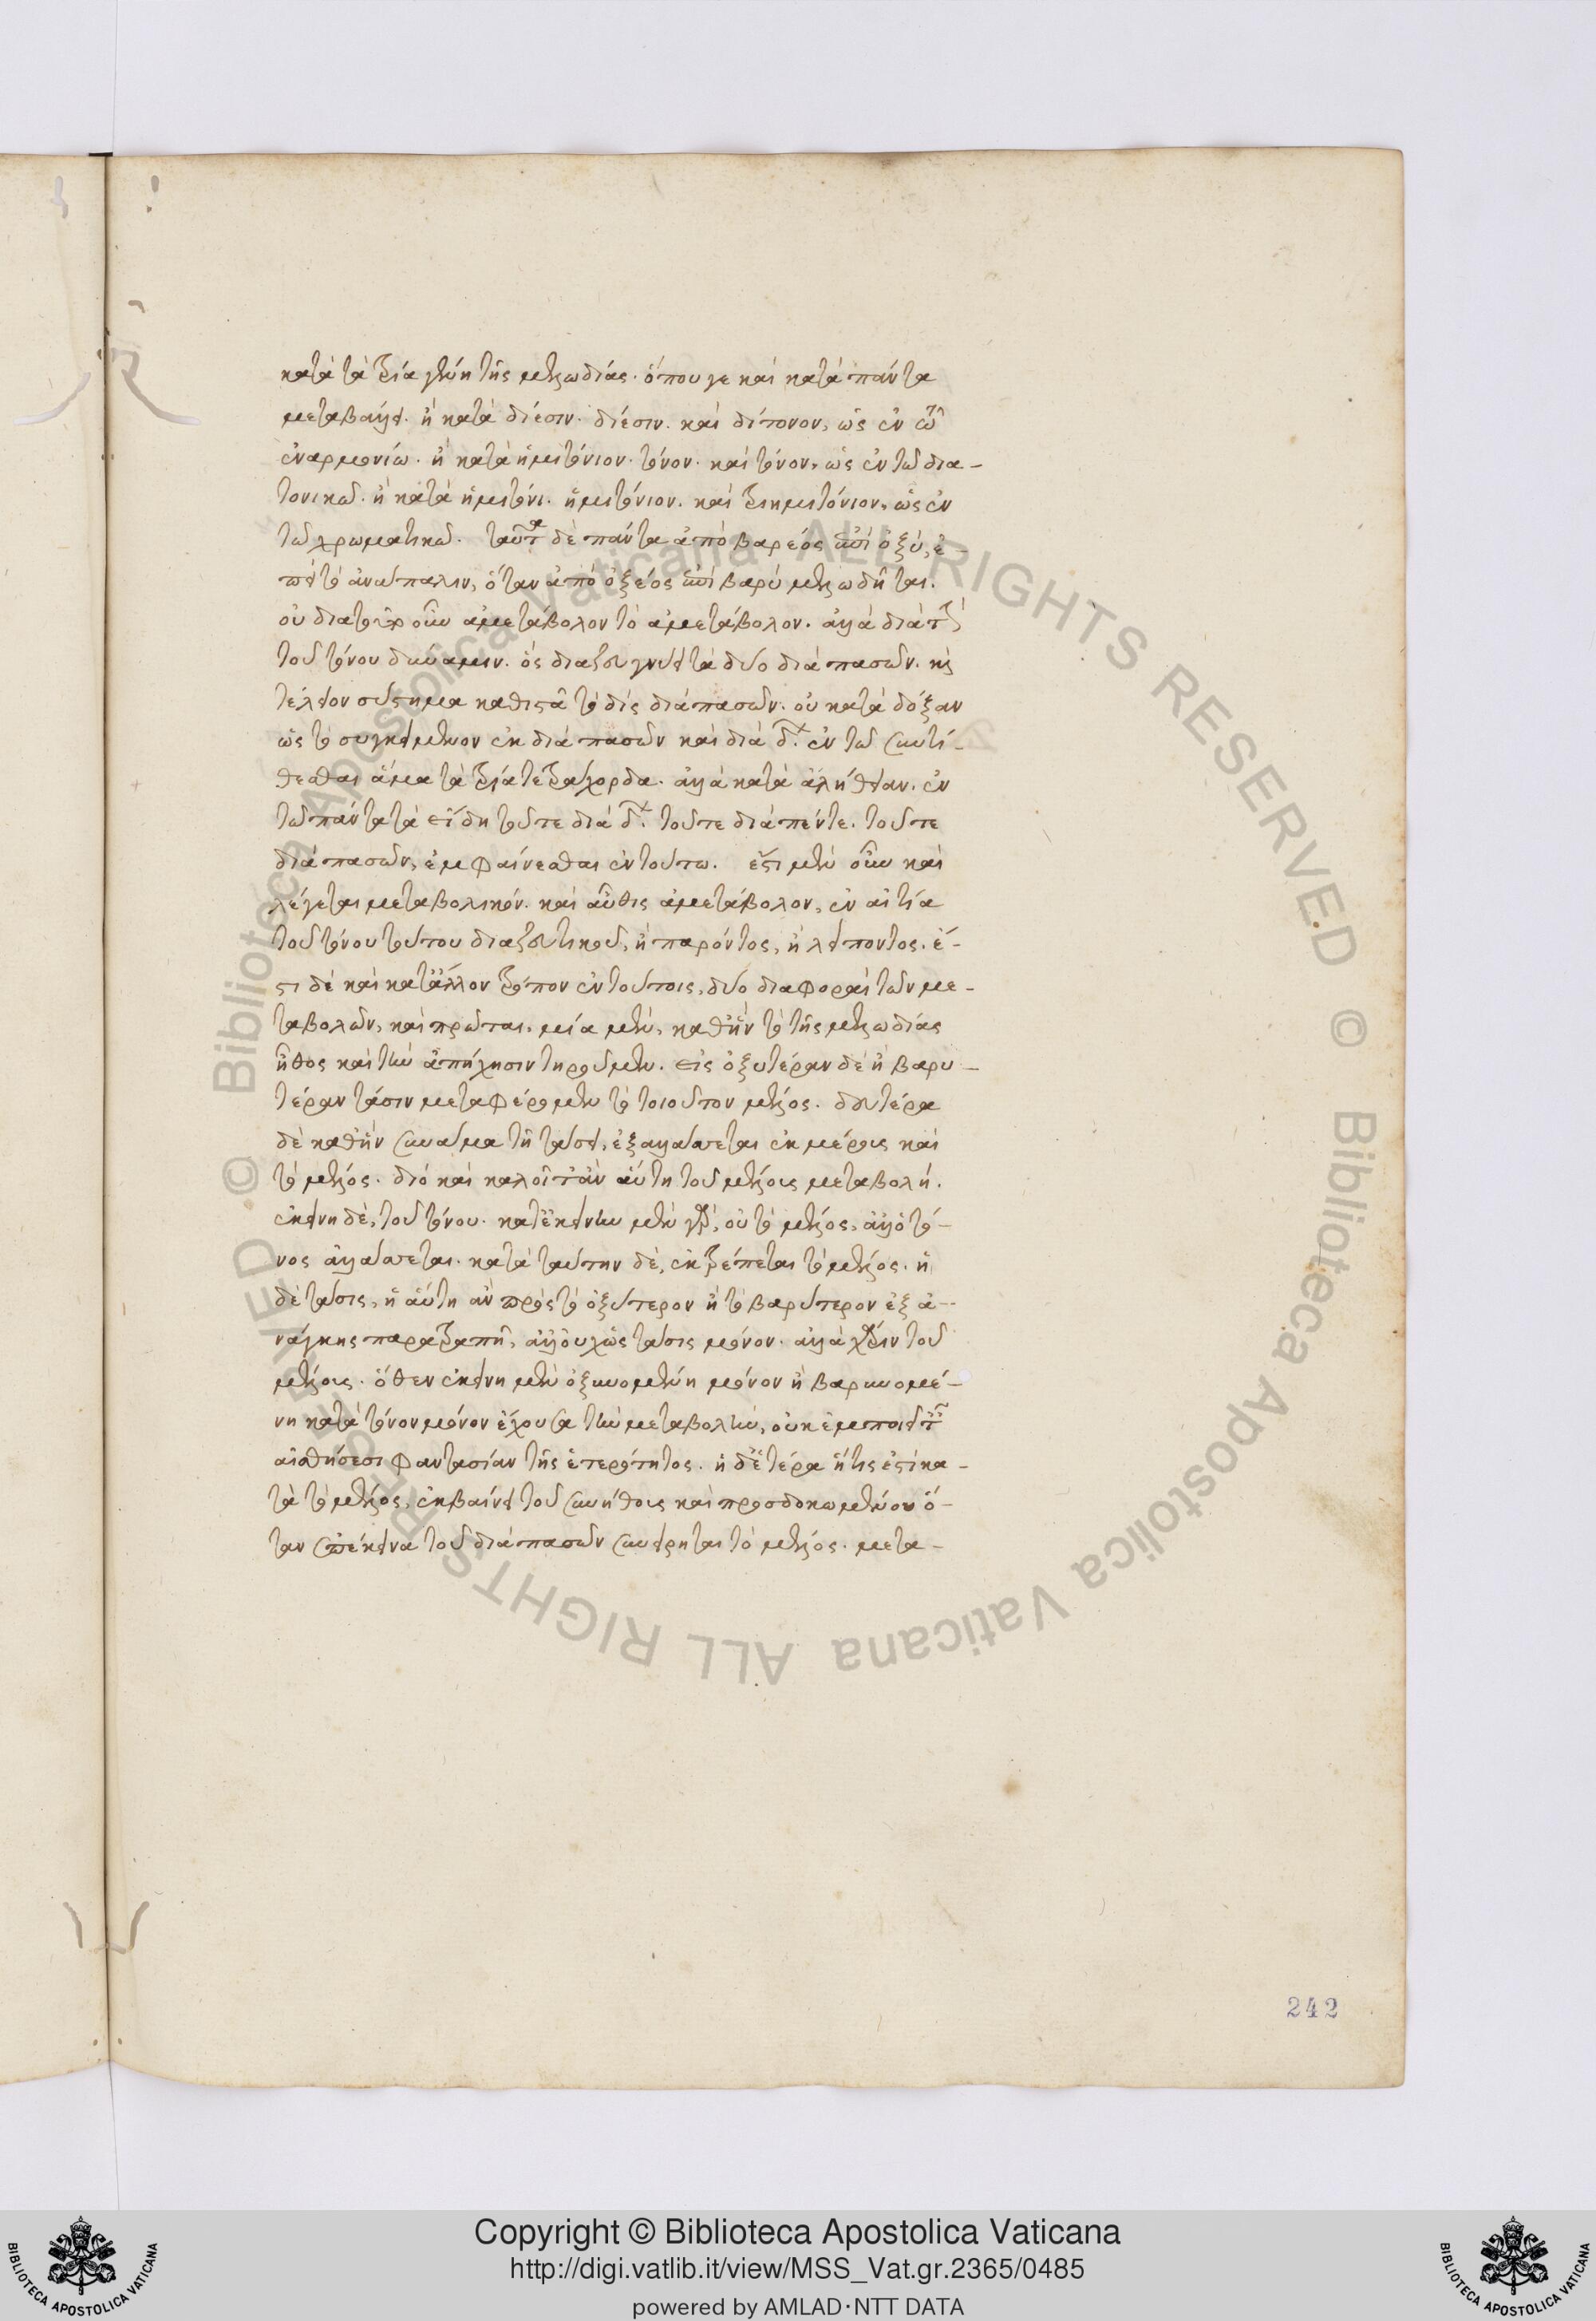 κατὰ τὰ τρία γένη τῆς μελωδίας. ὅπου γε καὶ κατὰ πάντα
μεταβαίνει. ἢ κατὰ δίεσιν. δίεσιν. καὶ δίτονον, ὡς ἐν τῶ
ἐναρμονίω. ἢ κατὰ ἡμιτόνιον. τόνον. καὶ τόνον, ὡς ἐν τῶ δια-
τονικῶ. ἢ κατὰ ἡμιτόνι. ἡμιτόνιον. καὶ τριημιτόνιον, ὡς ἐν
τῶ χρωματικῶ. ταῦτα δὲ πάντα ἀπὸ βαρέος ἐπὶ ὀξύ, ἐ-
πεὶ τὸ ἀνάπαλιν, ὅταν ἀπὸ ὀξέος ἐπὶ βαρὺ μελωδῆται.
οὐ διατοῦτο οὖν ἀμετάβολον τὸ ἀμετάβολον. ἀλλὰ διὰ τὴν
τοῦ τόνου δύναμιν. ὃς διαζευγνύει τὰ δύο διὰ πασῶν. καὶ
τέλειον σύστημα καθιστᾶ τὸ δὶς διὰ πασῶν. οὐ κατὰ δόξαν
ὡς τὸ συγκείμενον ἐκ διὰ πασῶν καὶ διὰ δ. ἐν τῶ συντί-
θεσθαι ἅμα τὰ τρία τετράχορδα. ἀλλὰ κατὰ ἀλήθειαν. ἐν
τῶ πάντα τὰ εἴδη τοῦτε διὰ δ. τοῦτε διὰ πέντε. τοῦτε
διὰ πασῶν, ἐμφαίνεσθαι ἐν τούτω. ἔστι μὲν οὖν καὶ
λέγεται μεταβολικόν. καὶ αὖθις ἀμετάβολον, ἐν αἰτία
τοῦ τόνου τούτου διαζευκτικοῦ, ἢ παρόντος, ἢ λείποντος. ἔ-
στι δὲ καὶ κατ' ἄλλον τρόπον ἐν τούτοις, δύο διαφοραὶ τῶν με-
ταβολῶν, καὶ πρῶται. μία μὲν, καθ' ἣν τὸ τῆς μελωδίας
ἦθος καὶ τὴν ἀπήχησιν τηροῦμεν. εἰς ὀξυτέραν δὲ ἢ βαρυ-
τέραν τάσιν μεταφέρομεν τὸ τοιοῦτον μέλος. δευτέρα
δὲ καθ' ἣν συνάμα τῆ τάσει, ἐξαλλάττεται ἐκ μέρους καὶ
τὸ μέλος. διὸ καὶ καλοῖτ' ἂν αὕτη τοῦ μέλους μεταβολή.
ἐκείνη δὲ, τοῦ τόνου. κατ' ἐκείνην μὲν γὰρ, οὐ τὸ μέλος, ἀλλ' ὁ τό-
νος ἀλλάττεται. κατὰ ταύτην δὲ, ἐκτρέπεται τὸ μέλος. ἡ
δὲ τάσις, ἡ αὕτη ἂν πρὸς τὸ ὀξύτερον ἢ τὸ βαρύτερον ἐξ ἀ-
νάγκης παρατραπῆ, ἀλλ' οὐχ ὡς τάσις μόνον. ἀλλὰ χάριν τοῦ
μέλους. ὅθεν ἐκείνη μὲν ὀξυνομένη μόνον ἢ βαρυνομέ-
νη κατὰ τόνον μόνον ἔχουσα τὴν μεταβολὴν, οὐκ ἐμποιεῖ τῆ
αἰσθήσεσι φαντασίαν τῆς ἑτερότητος. ἡ δ' ἑτέρα ἥτις ἐστὶ κα-
τὰ τὸ μέλος, ἐκβαίνει τοῦ συνήθους καὶ προσδοκωμένου ὅ-
ταν ἐπέκεινα τοῦ διὰ πασῶν συνείρηται τὸ μέλος. μετα-
242
Copyright © Biblioteca Apostolica Vaticana
http://digi.vatlib.it/view/MSS_Vat.gr.2365/0485
powered by AMLAD·NTT DATA
BIBLIOTECA APOSTOLICA VATICANA
BIBLIOTECA APOSTOLICA VATICANA